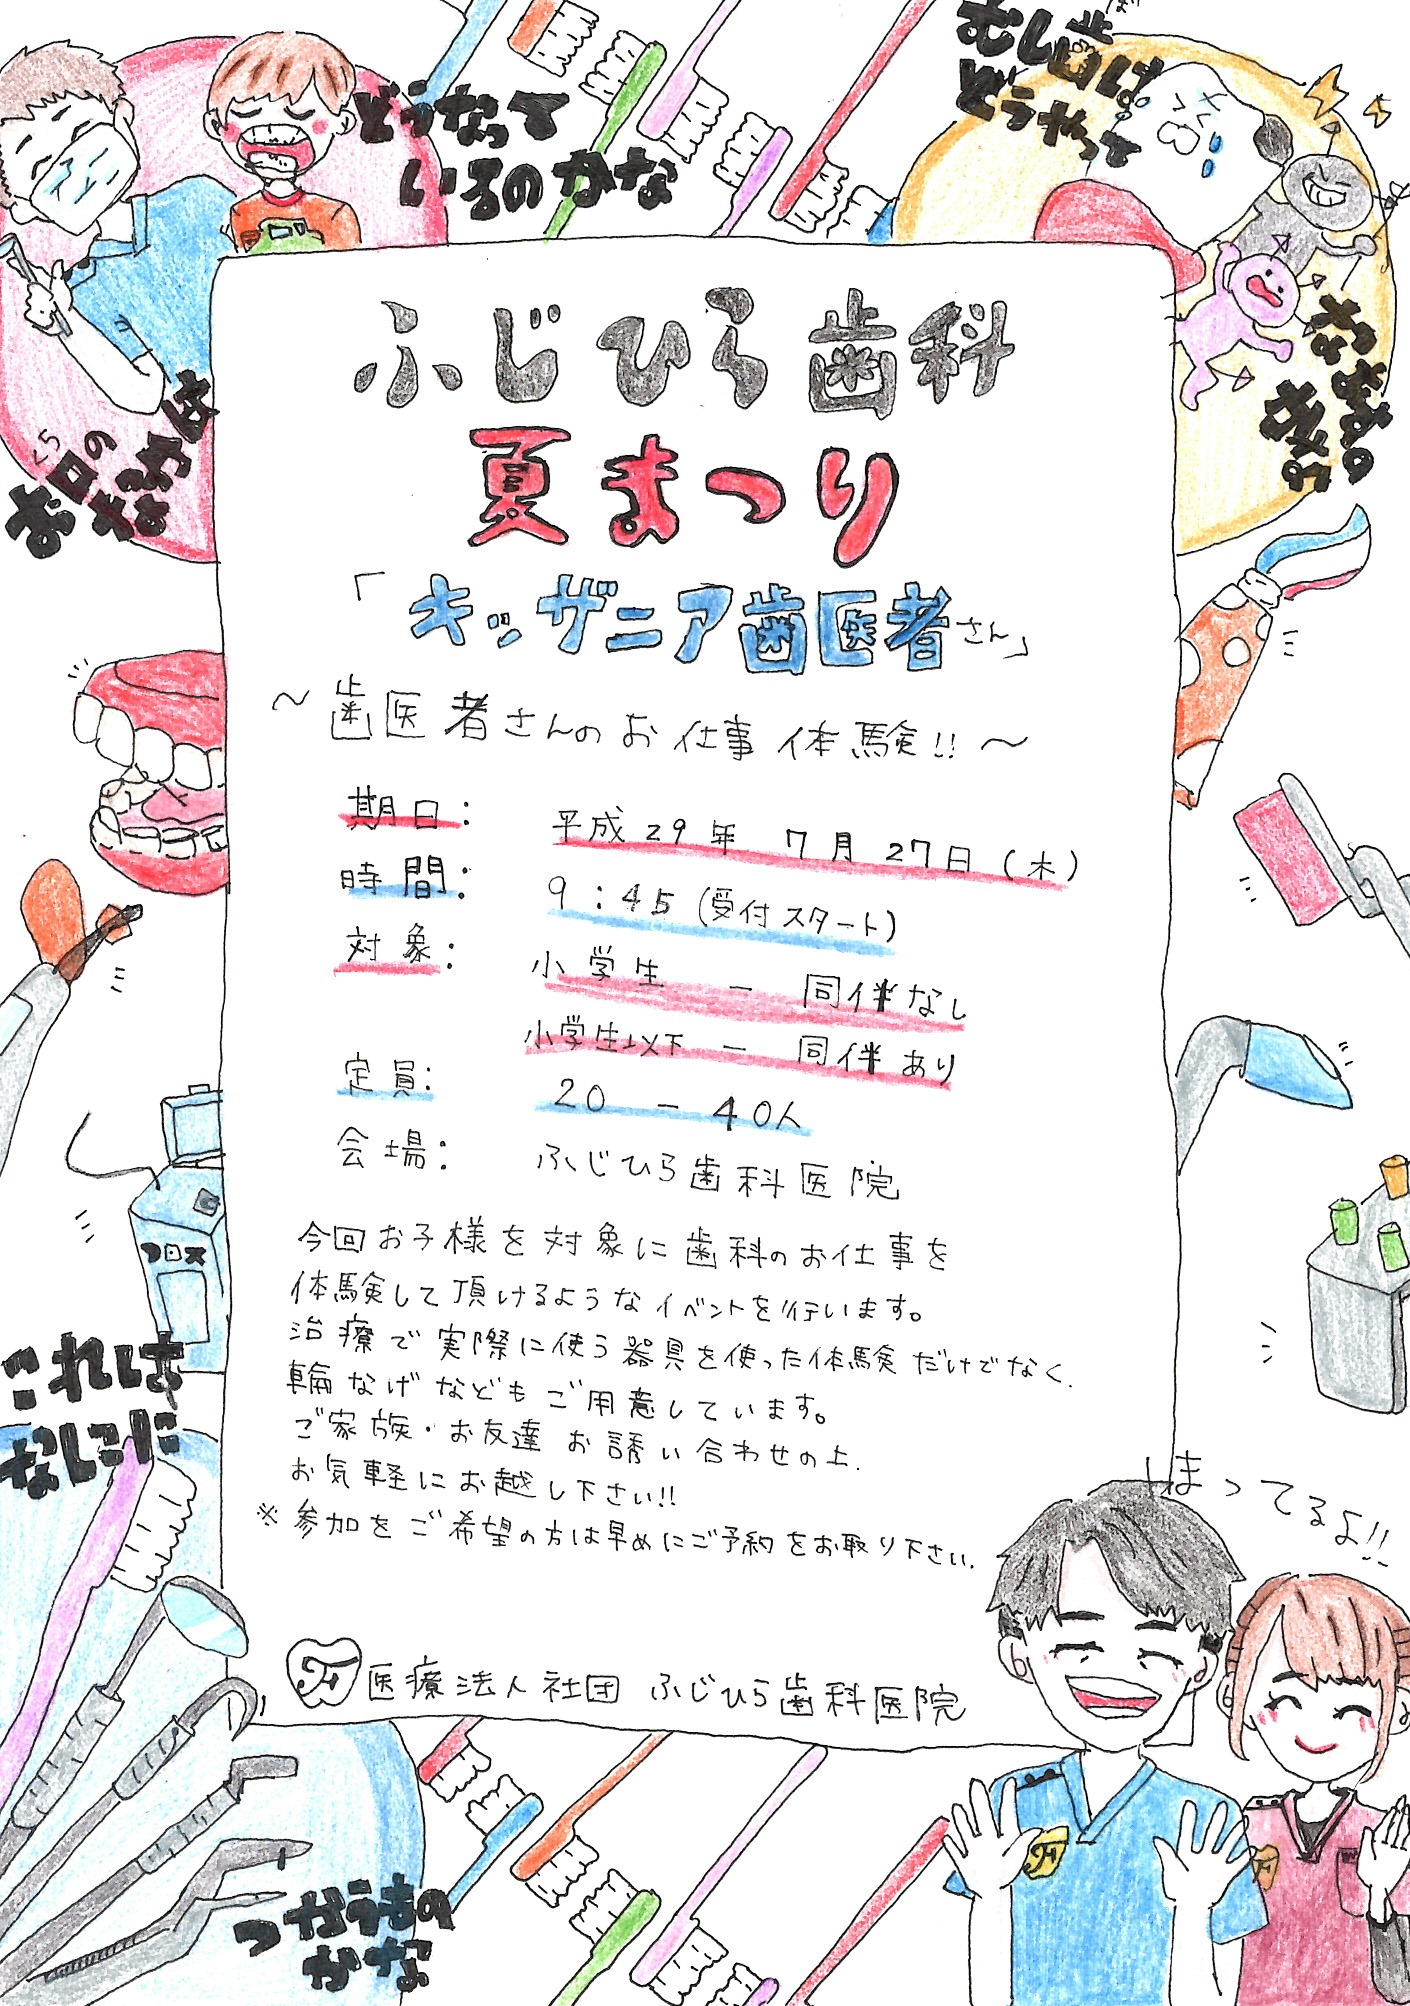 どうなって
いるのかな
お口のなかは
くち
むし歯は
ば
どうやって
なおすの
かな
ふじひら歯科
夏まつり
「キッザニア歯医者さん」
～歯医者さんのお仕事体験!!～
期日: 平成29年 7月27日(木)
時間: 9:45(受付スタート)
対象: 小学生 － 同伴なし
小学生以下 － 同伴あり
定員: 20 － 40人
会場: ふじひら歯科医院
今回お子様を対象に歯科のお仕事を
体験して頂けるようなイベントを行います。
治療で実際に使う器具を使った体験だけでなく、
輪なげなどもご用意しています。
ご家族・お友達お誘い合わせの上、
お気軽にお越し下さい!!
※参加をご希望の方は早めにご予約をお取り下さい。
これは
なにに
つかうもの
かな
まってるよ!!
F 医療法人社団 ふじひら歯科医院
F
F